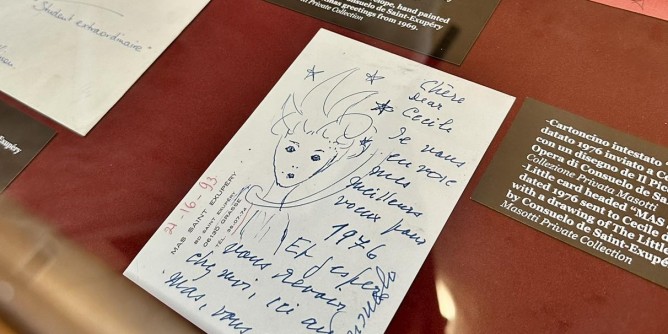 "Student extraordinaire"
ope, hand painted
onsuelo de Saint-Exupéry
nas greetings from 1969.
Masotti Private Collection
Exupéry
Chère
dear
Cecile
Je vous
envoie
mes
meilleurs
voeux pour
1976
Et j'espère
vous revoir
chez moi, ici au
mas, vous
Consuelo
21-16-93
MAS SAINT EXUPÉRY
BD SAINT EXUPÉRY
06130 GRASSE
TEL.
-Cartoncino intestato
datato 1976 inviato a Ce
con un disegno de Il P
Opera di Consuelo de Sa
Collezione Privata Masot
Little card headed "MAS
dated 1976 sent to Cecile
with a drawing of The Littl
by Consuelo de Saint-Exupé
Masotti Private Collection